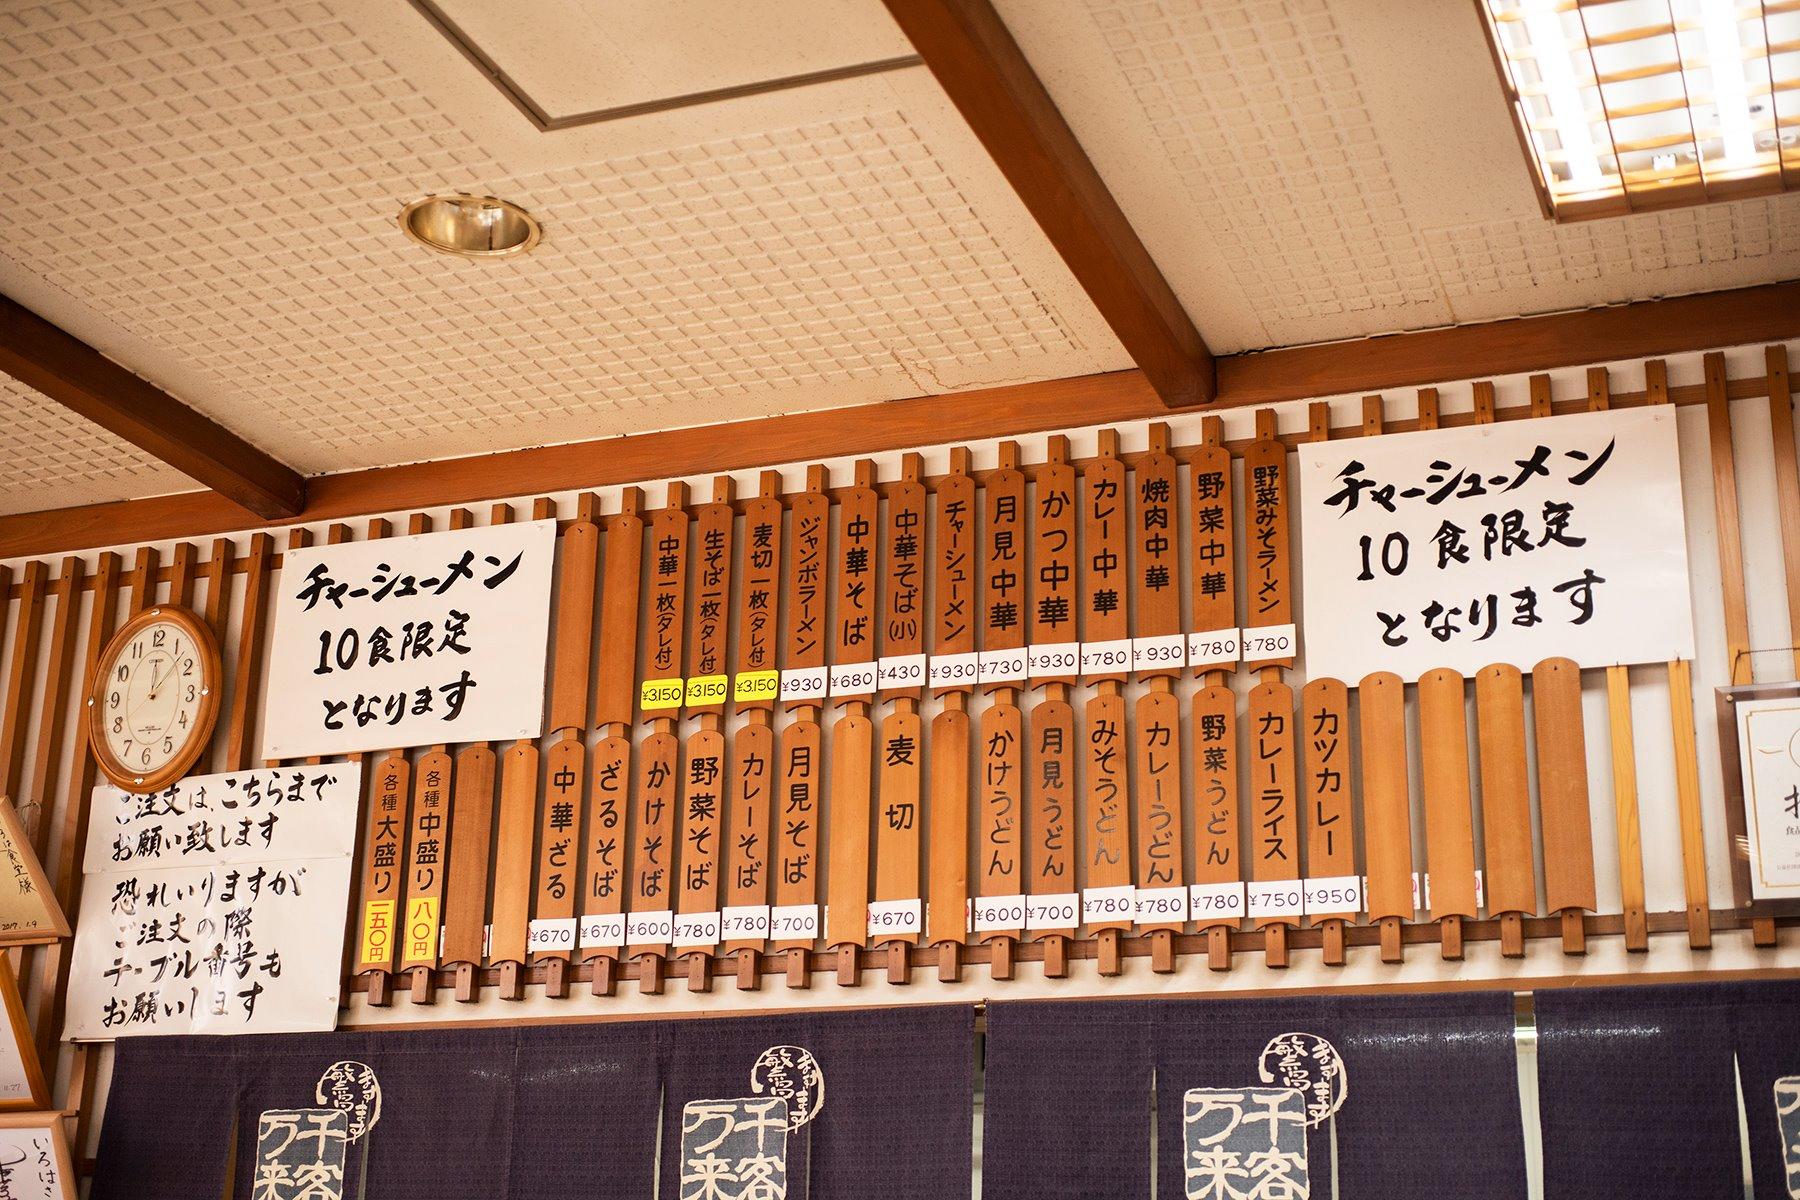 チャーシューメン
10食限定
となります
ご注文は、こちらまで
お願い致します
恐れいりますが
ご注文の際
テーブル番号も
お願いします
野菜みそラーメン ¥780
野菜中華 ¥780
焼肉中華 ¥930
カレー中華 ¥780
かつ中華 ¥930
月見中華 ¥730
チャーシューメン ¥930
中華そば(小) ¥430
中華そば ¥680
ジャンボラーメン ¥930
麦切一枚(タレ付) ¥3.150
生そば一枚(タレ付 ¥3150
中華一枚(タレ付) ¥3150
カツカレー ¥950
カレーライス ¥750
野菜うどん ¥780
カレーうどん ¥780
みそうどん ¥780
月見うどん ¥700
かけうどん ¥600
麦切 ¥670
月見そば ¥700
カレーそば ¥780
野菜そば ¥780
かけそば ¥600
ざるそば ¥670
中華ざる ¥670
各種中盛り 八〇円
各種大盛り 一五〇円
チャーシューメン
10食限定
となります
12
1
2
3
4
5
6
7
8
9
10
11
食堂様
2017.1.9
11.27
いろはさ
千客
万来
千客
万来
千客
万来